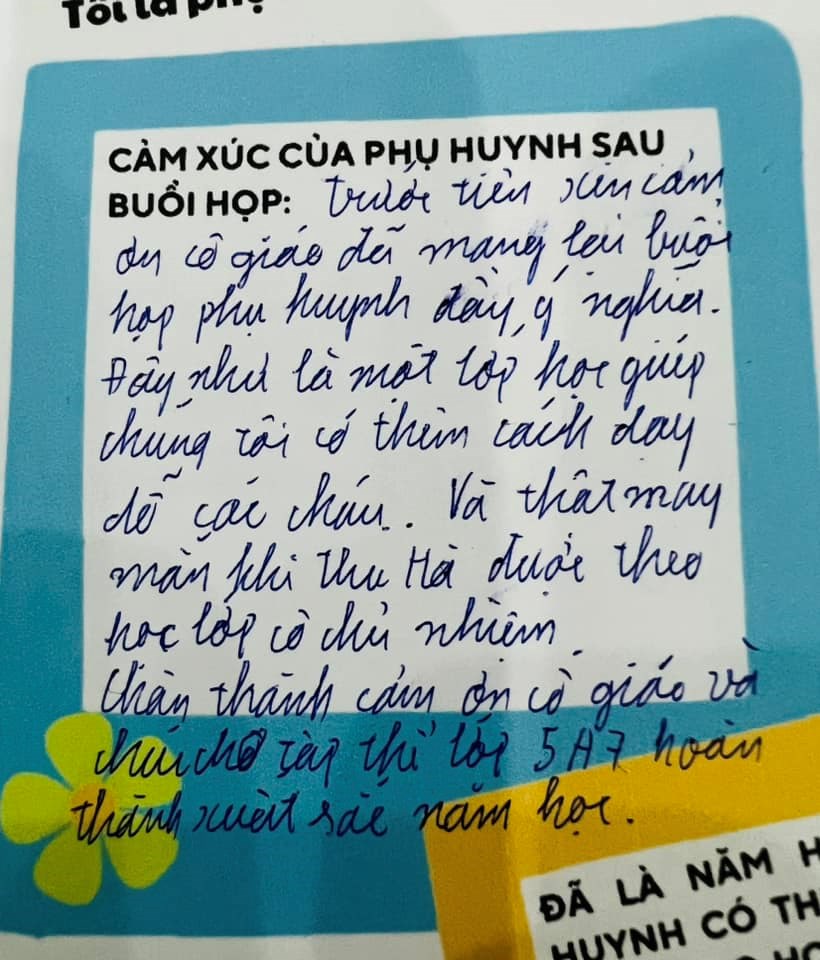 Tôi là phụ
CẢM XÚC CỦA PHỤ HUYNH SAU
BUỔI HỌP: Trước tiên xin cảm
ơn cô giáo đã mang lại buổi
họp phụ huynh đầy ý nghĩa.
Đây như là một lớp học giúp
chúng tôi có thêm cách dạy
dỗ các cháu. Và thật may
mắn khi Thu Hà được theo
học lớp cô chủ nhiệm
Chân thành cảm ơn cô giáo và
chúc cho tập thể lớp 5A7 hoàn
thành xuất sắc năm học.
ĐÃ LÀ NĂM H
HUYNH CÓ TH